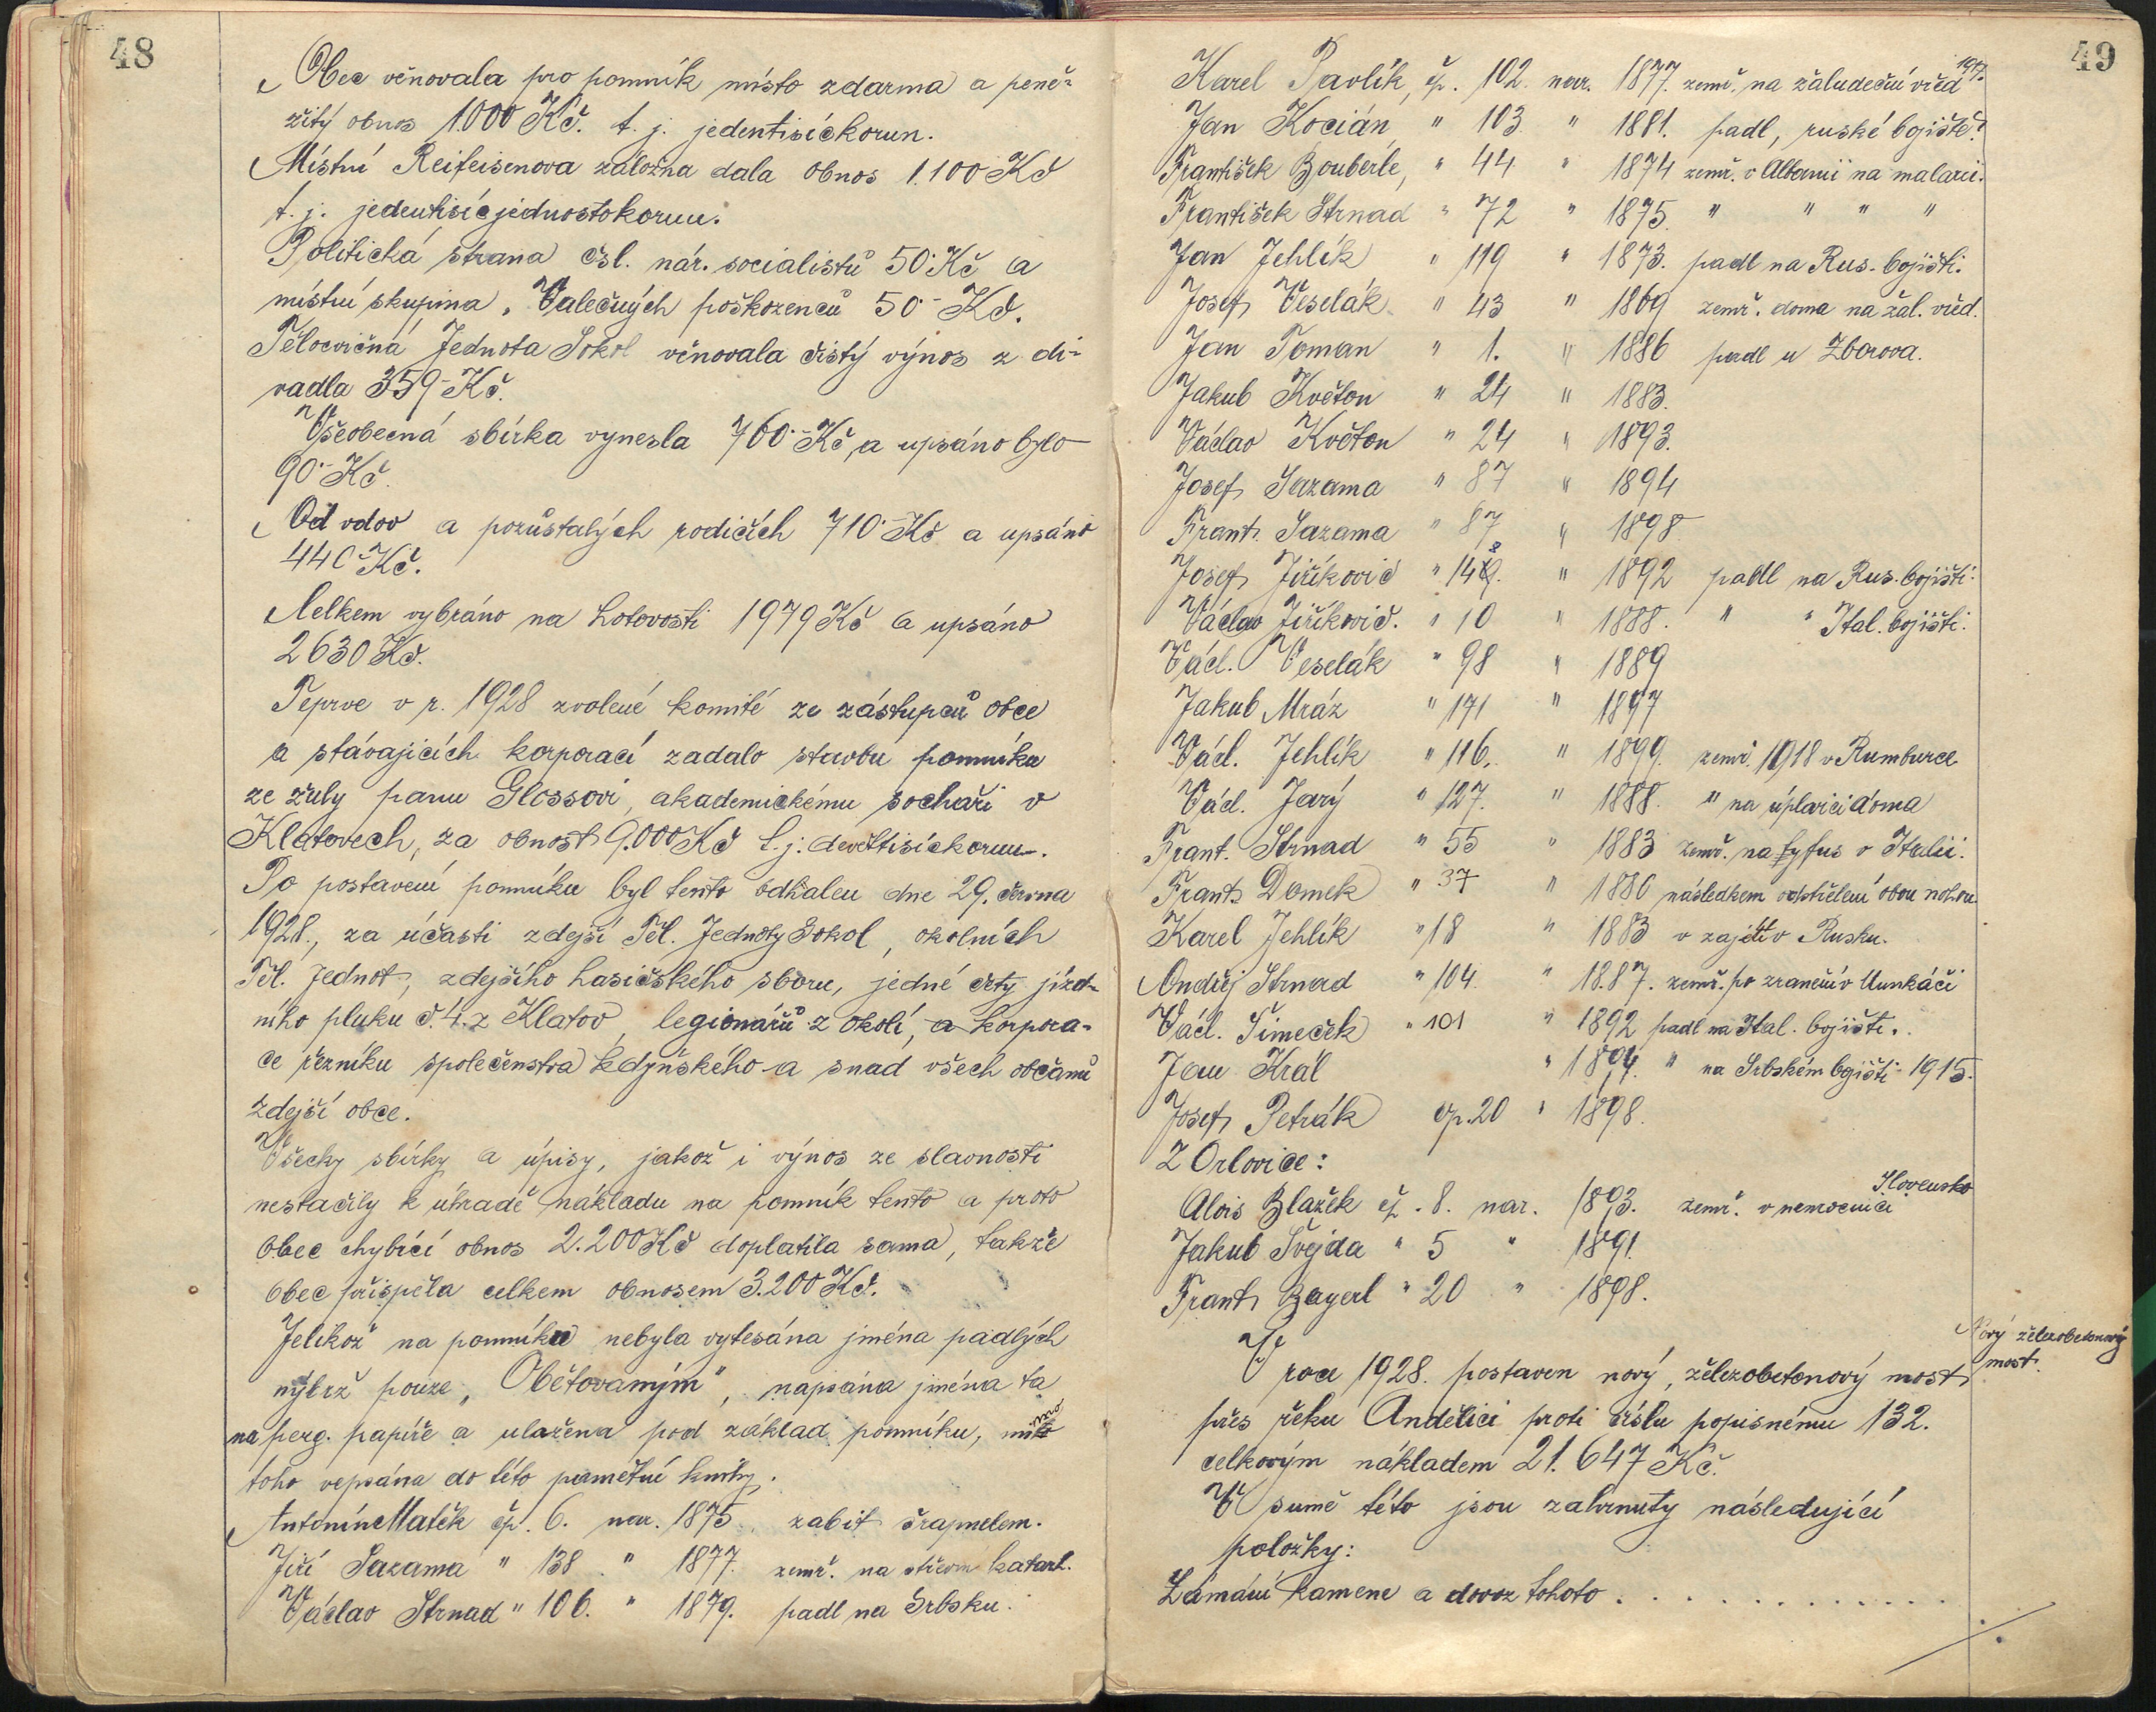 48
Obec věnovala pro pomník místo zdarma a peně-
žitý obnos 1.000 Kč. t. j. jedentisíckorun.
Místní Reifeisenova záložna dala obnos 1.100 Kč
t. j. jedentisícjednostokorun.
Politická strana čsl. nár. socialistů 50·Kč a
místní skupina „Válečných poškozenců 50·- Kč.
Tělocvičná Jednota Sokol věnovala čistý výnos z di-
vadla 359·-Kč.
Všeobecná sbírka vynesla 760·-Kč, a upsáno bylo
90·-Kč.
Od vdov a pozůstalých rodičích 710·-Kč a upsáno
440-Kč.
Celkem vybráno na hotovosti 1979 Kč a upsáno
2630 Kč.
Teprve v r. 1928 zvolené komité ze zástupců obce
a stávajících korporací zadalo stavbu pomníku
ze žuly panu Glossovi, akademickému sochaři v
Klatovech, za obnost 9.000 Kč t. j. devěttisíckorun.
Po postavení pomníku byl tento odhalen dne 29. června
1928., za účasti zdejší Těl. Jednoty Sokol, okolních
Těl. Jednot, zdejšího hasičského sboru, jedné čety jízd-
ního pluku č. 4. z Klatov, legionářů z okolí, a korpora-
ce řezníku společenstva kdyňského a snad všech občanů
zdejší obce.
Všecky sbírky a úpisy, jakož i výnos ze slavnosti
nestačily k úhradě nákladu na pomník tento a proto
obec chybící obnos 2.200 Kč doplatila sama, takže
obec přispěla celkem obnosem 3.200 Kč.
Jelikož na pomníku nebyla vytesána jména padlých
nýbrž pouze „Obětovaným", napsána jména ta
na perg. papíře a uložena pod základ pomníku, mimo
toho vepsána do této pamětní knihy.
Antonín Matěk čp. 6. nar. 1875. zabit šrapnelem.
Jiří Sazama " 138 " 1877. zemř. na střevní katarh.
Václav Strnad " 106. " 1879. padl na Srbsku.
49
Karel Pavlík, čp. 102. nar. 1877. zemř. na žaludeční vřed 1917.
Jan Kocián " 103 " 1881. padl, ruské bojiště.
František Bouberle, " 44 " 1874 zemř. v Albanii na malarii.
František Strnad " 72 " 1875. " " " "
Jan Jehlík " 119 " 1873. padl na Rus. bojišti.
Josef Veselák " 43 " 1869 zemř. doma na žal. vřed.
Jan Toman " 1. " 1886 padl u Zborova.
Jakub Květon " 24 " 1883.
Václav Květon " 24 " 1893.
Josef Sazama " 87 " 1894
Frant. Sazama " 87 " 1898
Josef Jiříkovič " 148. " 1892 padl na Rus. bojišti.
Václav Jiříkovič. " 10 " 1888. " " Ital. bojišti.
Václ. Veselák " 98 " 1889
Jakub Mráz " 171 " 1897
Václ. Jehlík " 116. " 1899. zemř. 1918 v Rumburce
Václ. Jarý " 127. " 1888. " na úplavici doma
Frant. Strnad " 55 " 1883 zemř. na tyfus v Italii.
Frant. Domek " 37 " 1880 následkem odstřelení obou nohou
Karel Jehlík " 18 " 1883 v zajetí v Rusku.
Ondřej Strnad " 104. " 1887. zemř. po zranění v Munkáči
Václ. Šimeček " 101 " 1892 padl na Ital. bojišti.
Jan Král " 1894. " na Srbském bojišti 1915.
Josef Petrák čp. 20 " 1898.
Z Orlovice:
Alois Blažek čp. 8. nar. 1893. zemř. v nemocnici Slovensko
Jakub Švejda " 5 " 1891.
Frant. Bayerl " 20 " 1898.
V roce 1928. postaven nový, železobetonový most
Nový železobetonový
most.
přes řeku Andělici proti číslu popisnému 132.
celkovým nákladem 21.647 Kč.
V sumě této jsou zahrnuty následující
položky:
Lámání kamene a dovoz tohoto . . . . . . . . . . . . .
./.